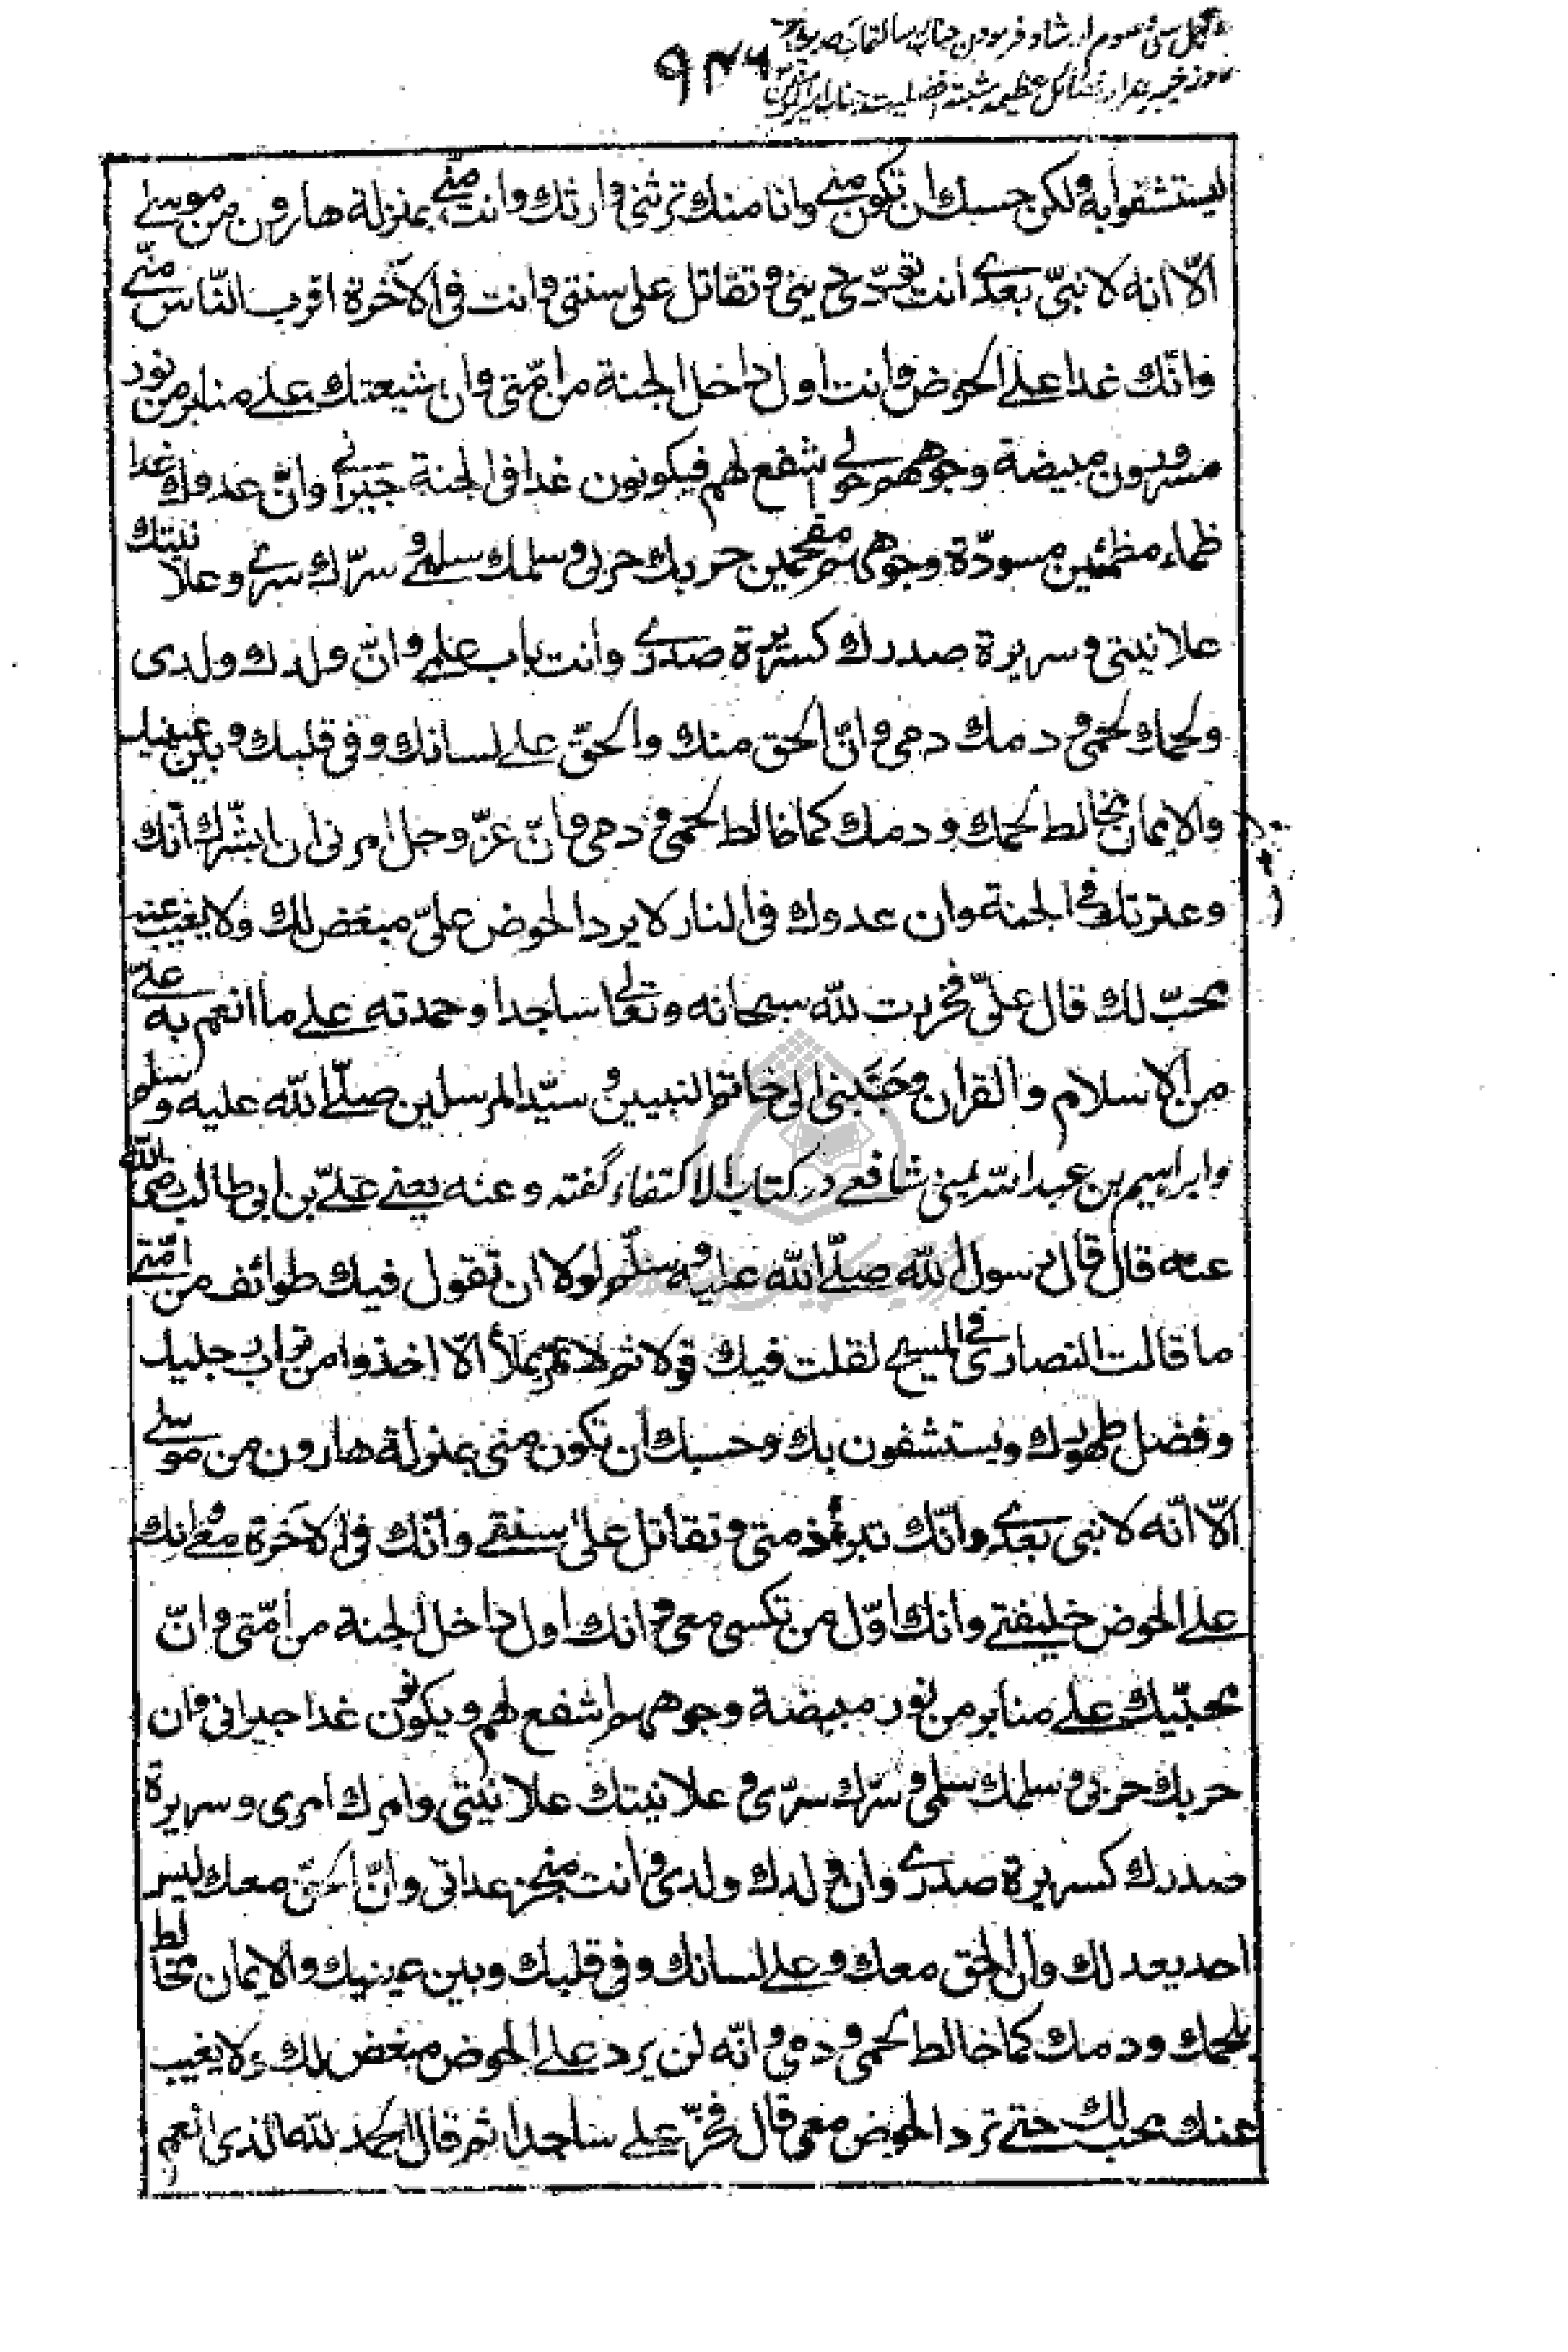 دلیل سی و سوم ارشاد فرمودن جناب رسالتمآب صلعم
روز خیبر بعد از فضائل عظیمه مثبتهٔ افضلیت جناب امیر المؤمنین
۹۴۶
ليستشفوا به ولكن حسبك ان تكون منے وانا منك ترثني وارثك وانت منّے بمنزلة هارون من موسے
الّا انه لا نبيّ بعدے أنت تؤدّي ديني وتقاتل على سنتي وانت في الآخرة اقرب النّاس منّے
وانّك غدا علے الحوض وانت اول داخل الجنة من امّتي وان شيعتك علے منابر من نور
مسرورون مبيضة وجوههم حولے اشفع لهم فيكونون غدا في الجنة جيرانے وانّ عدوك غدا
ظماء مظمئين مسودّة وجوههم مقمحين حربك حربي وسلمك سلمے وسرّك سرے وعلانيتك
علانيتي وسريرة صدرك كسريرة صدرے وأنت باب علمے وانّ ولدك ولدى
ولحمك لحمي ودمك دمي وانّ الحق منك والحقّ علے لسانك وفي قلبك وبين عينيك
والايمان مخالط لحمك ودمك كما خالط لحمي ودمي وانّ عزّ وجل امرني ان ابشّرك أنك
وعترتك في الجنة وان عدوك في النار لا يرد الحوض عليّ مبغض لك ولا يغيب عنه
محبّ لك قال عليّ فخررت لله سبحانه وتعالے ساجدا وحمدته علے ما انعم به علے
من الاسلام والقران وحَبَّبني الى خاتم النبيين وسيّد المرسلين صلّے الله عليه وسلم
وابراهیم بن عبد الله یمینی شافعے در کتاب الاکتفاء گفته وعنه یعنے علیّ بن ابی طالب رضی الله
عنه قال قال رسول الله صلّے الله عليه وسلّم لولا ان تقول فيك طوائف من امّتے
ما قالت النصارى في المسيح لقلت فيك قولا ثم لا تمر بملأ الّا اخذوا من تراب رجليك
وفضل طهورك ويستشفون بك وحسبك أن تكون منّي بمنزلة هارون من موسے
الّا انّه لا نبي بعدے وانّك تبرئ ذمتي وتقاتل على سنتے وانّك في الآخرة معے وانك
علے الحوض خليفتے وانك اوّل من تكسى معي وانك اول داخل الجنة من امّتي وانّ
محبّيك علے منابر من نور مبيضة وجوههم اشفع لهم ويكونون غدا جيراني وان
حربك حربي وسلمك سلمي وسّرك سرّي وعلانيتك علانيتي وامرك امرى وسريرة
صدرك كسريرة صدرے وان ولدك ولدى وانت منجز عداتي وانّ الحقّ معك ليس
احد يعدلك وان الحق معك وعلے لسانك وفي قلبك وبين عينيك والايمان مخالط
بلحمك ودمك كما خالط لحمي ودمي وانّه لن يرد علے الحوض مبغض لك ولا يغيب
عنك محب لك حتے ترد الحوض معي قال فخرّ علے ساجدا ثم قال الحمد لله الذى انعم